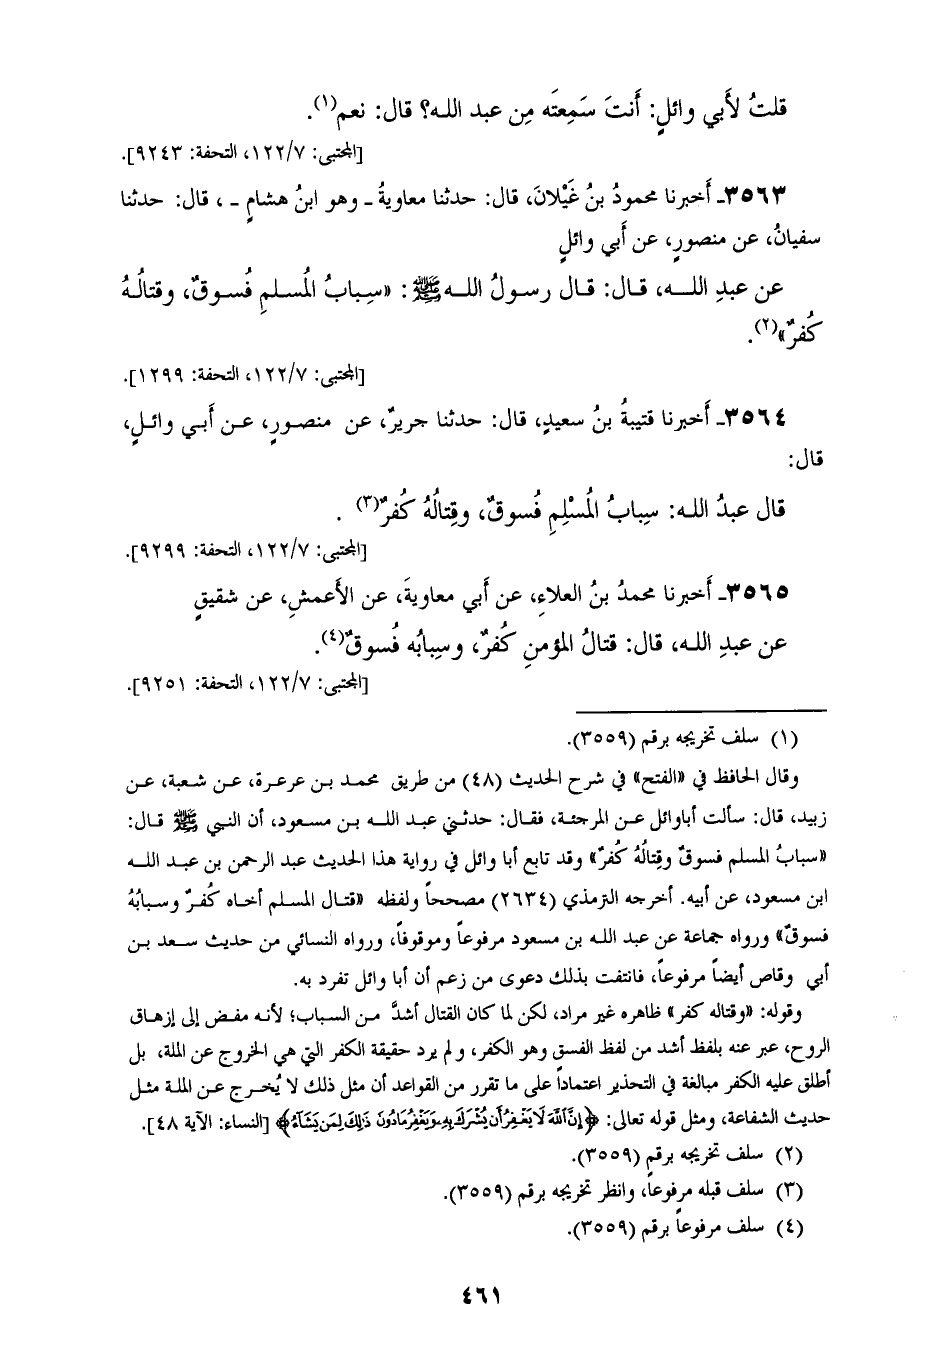 قلتُ لأَبي وائلٍ: أَنتَ سَمِعتَه مِن عبد الله؟ قال: نعم(١).
[المجتبى: ١٢٢/٧، التحفة: ٩٢٤٣].
٣٥٦٣ـ أَخبرنا محمودُ بنُ غَيْلانَ، قال: حدثنا معاويةُ ـ وهو ابنُ هشامٍ ـ ، قال: حدثنا
سفيانُ، عن منصورٍ، عن أَبي وائلٍ
عن عبدِ اللـه، قـال: قـال رسـولُ اللـه ﷺ: «سِبابُ المُسلمِ فُسوقٌ، وقتالُهُ
كُفرٌ»(٢).
[المجتبى: ١٢٢/٧، التحفة: ١٢٩٩].
٣٥٦٤ـ أَخبرنا قتيبةُ بنُ سعيدٍ، قال: حدثنا جريرٌ، عن منصورٍ، عـن أَبـي وائـلٍ،
قال:
قال عبدُ الله: سِبابُ المُسْلِمِ فُسوقٌ، وقِتالُهُ كُفرٌ(٣) .
[المجتبى: ١٢٢/٧، التحفة: ٩٢٩٩].
٣٥٦٥ـ أَخبرنا محمدُ بنُ العلاءِ، عن أَبي معاويةَ، عن الأَعمشِ، عن شقيقٍ
عن عبدِ الله، قال: قتالُ المؤمنِ كُفرٌ، وسِبابُه فُسوقٌ(٤).
[المجتبى: ١٢٢/٧، التحفة: ٩٢٥١].
(١) سلف تخريجه برقم (٣٥٥٩).
وقال الحافظ في «الفتح» في شرح الحديث (٤٨) من طريق محمد بـن عرعـرة، عـن شـعبة، عـن
زبيد، قال: سألت أباوائل عـن المرجئـة، فقـال: حدثـني عبـد اللـه بـن مسـعود، أن النبي ﷺ قـال:
«سبابُ المسلم فسوقٌ وقِتالُهُ كُفرٌ» وقد تابع أبا وائل في رواية هذا الحديث عبد الرحمن بن عبـد اللـه
ابن مسعود، عن أبيه. أخرجه الترمذي (٢٦٣٤) مصححاً ولفظه «قتـال المسلـم أخـاه كُفـرٌ وسـبابُهُ
فسوقٌ» ورواه جماعة عن عبد الله بن مسعود مرفوعاً وموقوفاً، ورواه النسائي من حديث سـعد بـن
أبي وقاص أيضاً مرفوعاً، فانتفت بذلك دعوى من زعم أن أبا وائل تفرد به.
وقوله: «وقتاله كفر» ظاهره غير مراد، لكن لما كان القتال أشدَّ مـن السباب؛ لأنـه مفـض إلى إزهـاق
الروح، عبر عنه بلفظ أشد من لفظ الفسق وهو الكفر، و لم يرد حقيقة الكفر التي هي الخروج عن الملة، بل
أطلق عليه الكفر مبالغة في التحذير اعتماداً على ما تقرر من القواعد أن مثل ذلك لا يُخـرج عـن الملة مثـل
حديث الشفاعة، ومثل قوله تعالى: ﴿إِنَّ اللَّهَ لَا يَغْفِرُ أَن يُشْرَكَ بِهِ وَيَغْفِرُ مَا دُونَ ذَلِكَ لِمَن يَشَاءُ﴾ [النساء: الآية ٤٨].
(٢) سلف تخريجه برقم (٣٥٥٩).
(٣) سلف قبله مرفوعاً، وانظر تخريجه برقم (٣٥٥٩).
(٤) سلف مرفوعاً برقم (٣٥٥٩).
٤٦١